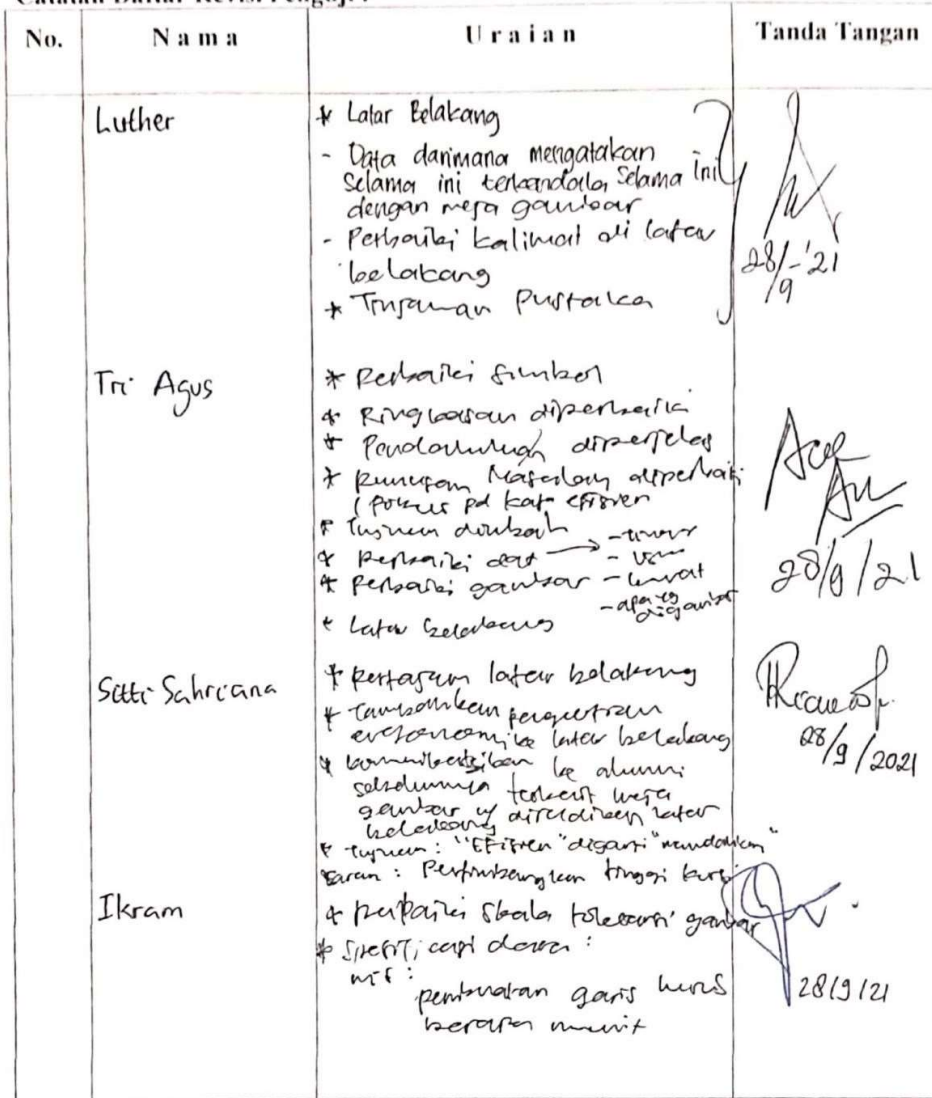 Catatan Daftar Revisi Penguji :
No. Nama Uraian Tanda Tangan
Luther
* Latar Belakang
- Data darimana mengatakan
selama ini terkendala selama ini
dengan meja gambar
- Perbaiki kalimat di latar
belakang
* Tinjauan Pustaka
28/9-'21
Tri Agus
* Perbaiki simbol
* Ringkasan diperbaiki
* Pendahuluan diperjelas
* Rumusan Masalah diperbaiki
(fokus pd kata efisien
* Tujuan dirubah
* Perbaiki dat - 
* Perbaiki gambar
- apa yg digambar
* Latar belakang
Acc
28/9/21
Sitti Sahriana
* Pertajam latar belakang
* Tambahkan pengertian
ergonomi ke latar belakang
* ke alumni
sebelumnya terkait meja
gambar u/ latar
belakang
* Tujuan : "Efisien" diganti "memudahkan"
Saran : Pertimbangkan tinggi kursi
28/9/2021
Ikram
* Perbaiki skala toleransi gambar
:
pembuatan garis lurus
berapa menit
28/9/21